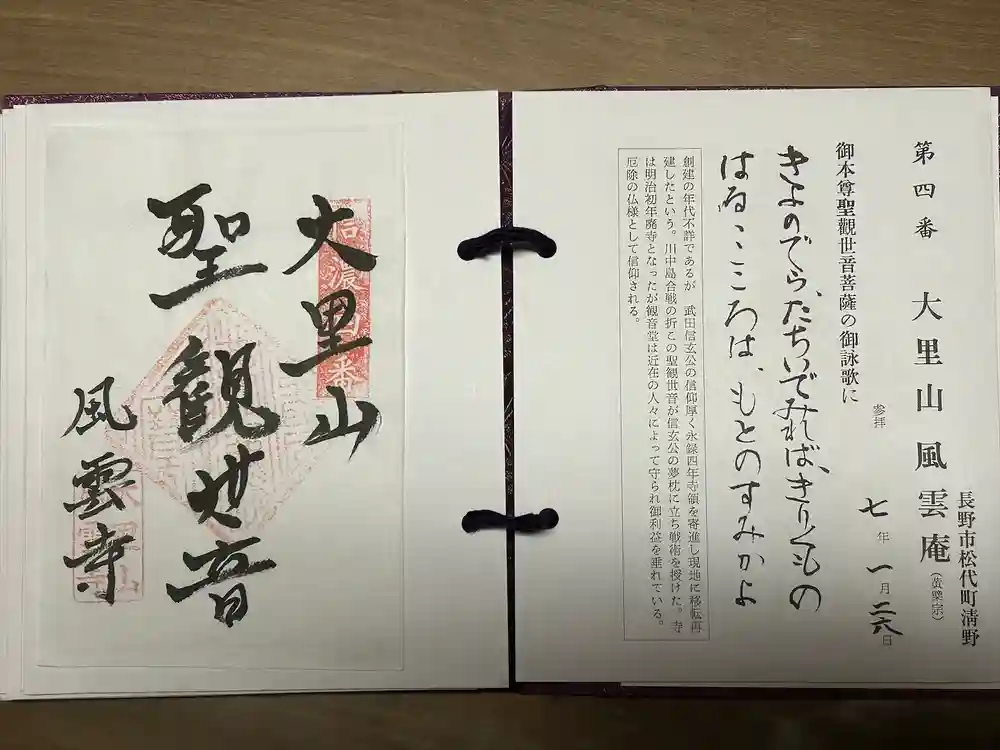 第四番
大里山風雲庵
(黄檗宗)
長野市松代町清野
御本尊聖觀世音菩薩の御詠歌に
参拝
七年一月二六日
きよのでら、たちいでみれば、きりくもの
はるゝこころは、もとのすみかよ
創建の年代不詳であるが 武田信玄公の信仰厚く永録四年寺領を寄進し現地に移転再
建したという。川中島合戦の折この聖観世音が信玄公の夢枕に立ち戦術を授けた。寺
は明治初年廃寺となったが観音堂は近在の人々によって守られ御利益を垂れている。
厄除の仏様として信仰される。
信濃四番
大里山
聖観世音
風雲寺